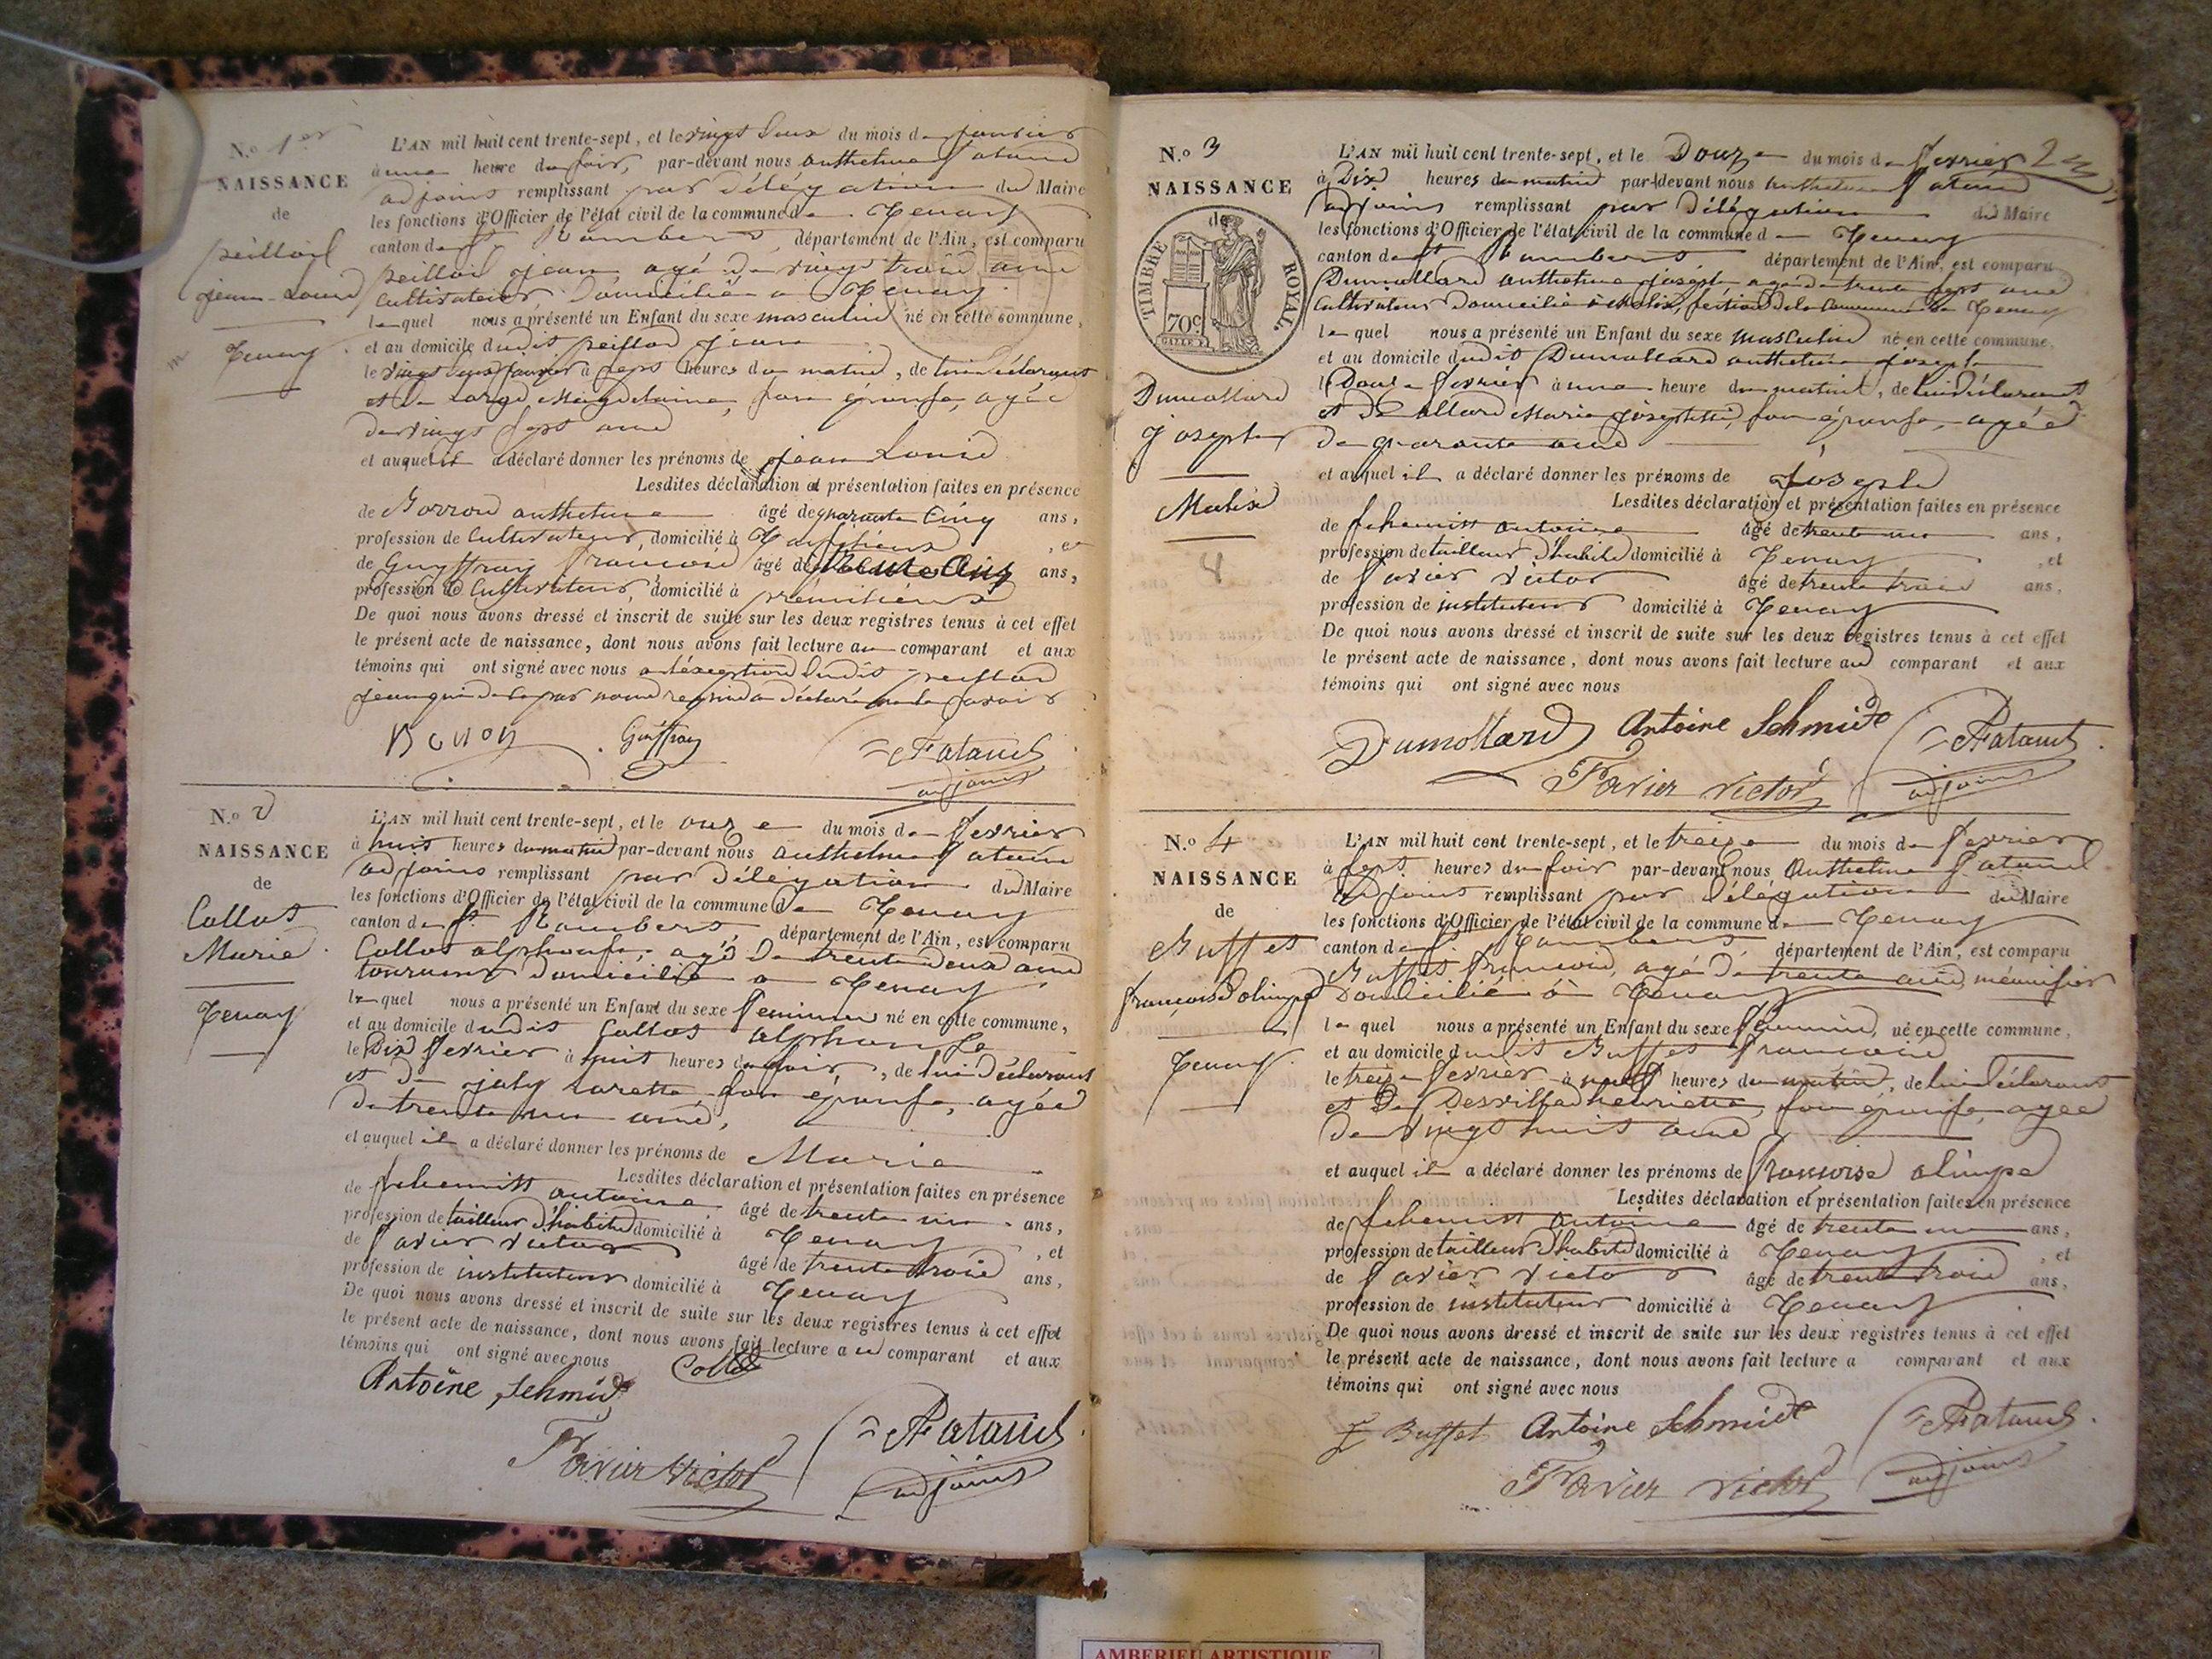 N.o 1er
NAISSANCE
de
peillod
jean-Louis
Tenay
L'AN mil huit cent trente-sept, et le vingt deux du mois de janvier
à une heure du soir, par-devant nous anthelme Fatanis
adjoint remplissant par délégation du Maire
les fonctions d'Officier de l'état civil de la commune de Tenay
canton de St Rambert, département de l'Ain, est comparu
peillod jean, agé de vingt trois ans
cultivateur, domicilié à Tenay
lequel nous a présenté un Enfant du sexe masculin né en cette commune,
et au domicile dudit peillod jean
le vingt un janvier à sept heures du matin, de lui déclarant
et de Large Magdelaine, son épouse, agée
de vingt sept ans
et auquel il a déclaré donner les prénoms de jean Louis
Lesdites déclaration et présentation faites en présence
de Borron anthelme âgé de quarante cinq ans,
profession de cultivateur, domicilié à , et
de Guffray François âgé de ans,
profession de cultivateur, domicilié à prémilieux
De quoi nous avons dressé et inscrit de suite sur les deux registres tenus à cet effet
le présent acte de naissance, dont nous avons fait lecture au comparant et aux
témoins qui ont signé avec nous a l'éxception dudit peillod
jean qui de ce par nous requis a déclaré ne le savoir
Boron Guffray Fatanis
adjoint
N.o 2
NAISSANCE
de
Collot
Marie
Tenay
L'AN mil huit cent trente-sept, et le onze du mois de fevrier
à huit heures du matin par-devant nous anthelme Fatanis
adjoint remplissant par délégation du Maire
les fonctions d'Officier de l'état civil de la commune de Tenay
canton de St Rambert, département de l'Ain, est comparu
Collot alphonse, agé de trente deux ans
tourneur domicilié a Tenay
lequel nous a présenté un Enfant du sexe feminin né en cette commune,
et au domicile dudit Collot alphonse
le dix fevrier à huit heures du soir, de lui déclarant
et de joly Larette son épouse, agée
de trente un ans,
et auquel il a déclaré donner les prénoms de Marie
Lesdites déclaration et présentation faites en présence
de schemitt antoine âgé de trente un ans,
profession de tailleur d'habits domicilié à Tenay, et
de favier victor âgé de trente trois ans,
profession de instituteur domicilié à Tenay
De quoi nous avons dressé et inscrit de suite sur les deux registres tenus à cet effet
le présent acte de naissance, dont nous avons fait lecture au comparant et aux
témoins qui ont signé avec nous Collot
Antoine Schmidt
Favier victor Fatanis
adjoint
N.o 3
NAISSANCE
de
TIMBRE ROYAL
70c
Dumollard
joseph
Malix
8
L'AN mil huit cent trente-sept, et le Douze du mois de fevrier 2
à Dix heures du matin par-devant nous anthelme Fatanis
adjoint remplissant par délégation du Maire
les fonctions d'Officier de l'état civil de la commune de Tenay
canton de St Rambert département de l'Ain, est comparu
Dumollard anthelme joseph agé de trente sept ans
cultivateur domicilié à Malix, section de la commune de Tenay
lequel nous a présenté un Enfant du sexe masculin né en cette commune,
et au domicile dudit Dumollard anthelme joseph
le Douze fevrier à une heure du matin, de lui déclarant
et de allard Marie josephtte, son épouse, agée
de quarante ans
et auquel il a déclaré donner les prénoms de Joseph
Lesdites déclaration et présentation faites en présence
de schemitt antoine âgé de trente un ans,
profession de tailleur d'habits domicilié à Tenay, et
de favier victor âgé de trente trois ans,
profession de instituteur domicilié à Tenay
De quoi nous avons dressé et inscrit de suite sur les deux registres tenus à cet effet
le présent acte de naissance, dont nous avons fait lecture au comparant et aux
témoins qui ont signé avec nous
Dumollard Antoine Schmidt Fatanis
Favier victor adjoint
N.o 4
NAISSANCE
de
Buffet
françoise olimpe
Tenay
L'AN mil huit cent trente-sept, et le treize du mois de fevrier
à sept heures du soir par-devant nous Anthelme Fatanis
adjoint remplissant par délégation du Maire
les fonctions d'Officier de l'état civil de la commune de Tenay
canton de St Rambert département de l'Ain, est comparu
Buffet françois, agé de trente ans, ménuisier
Domicilié à Tenay
lequel nous a présenté un Enfant du sexe féminin, né en cette commune,
et au domicile dudit Buffet françois
le treize fevrier à heures du matin, de lui déclarant
et de Desvilla henriette, son épouse agée
de vingt huit ans
et auquel il a déclaré donner les prénoms de françoise olimpe
Lesdites déclaration et présentation faites en présence
de schemitt antoine âgé de trente un ans,
profession de tailleur d'habits domicilié à Tenay, et
de favier victor âgé de trente trois ans,
profession de instituteur domicilié à Tenay
De quoi nous avons dressé et inscrit de suite sur les deux registres tenus à cet effet
le présent acte de naissance, dont nous avons fait lecture a comparant et aux
témoins qui ont signé avec nous
F Buffet Antoine Schmidt Fatanis
Favier victor adjoint
AMBERIEU ARTISTIQUE